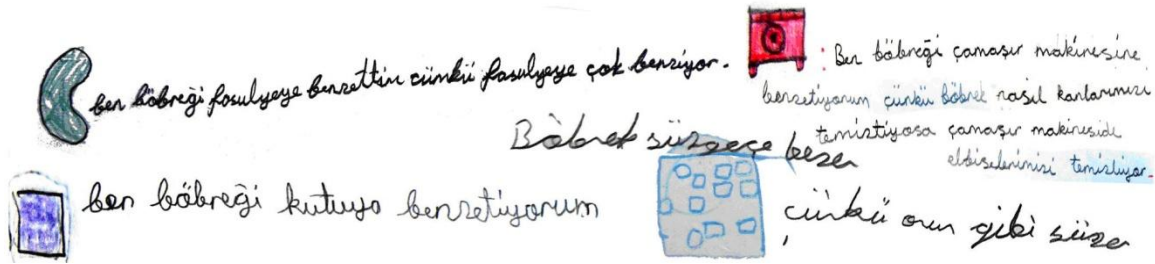 ben böbreği fasulyeye benzettim cünkü fasulyeye çok benziyor.
: Ben böbreği çamaşır makinesine
benzetiyorum çünkü böbrek nasıl kanlarımızı
temizliyosa çamaşır makineside
elbiselerimizi temizliyor.
Böbrek süzgeçe bezer
çünkü onun gibi süzer
ben böbreği kutuya benzetiyorum